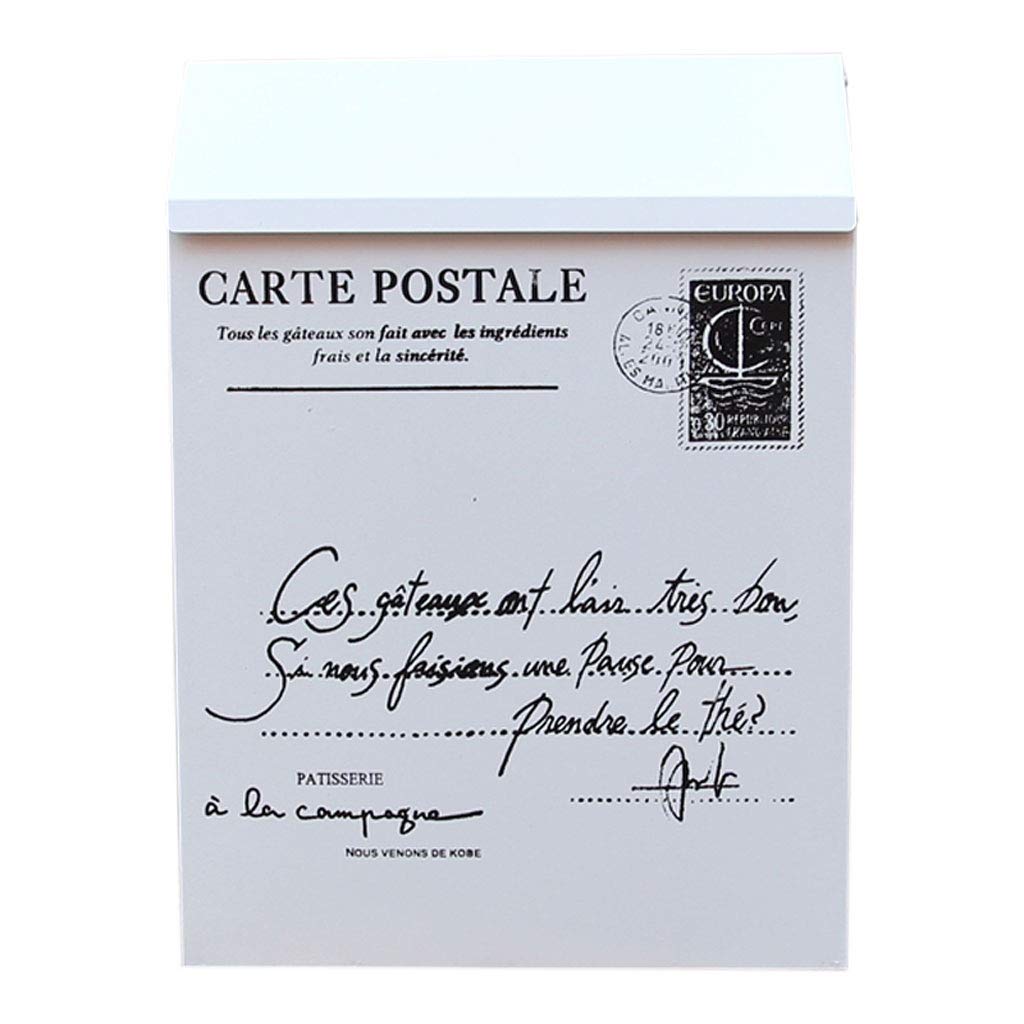 CARTE POSTALE
Tous les gâteaux son fait avec les ingrédients
frais et la sincérité.
EUROPA
CEPT
0,30 REPUBLIQUE
FRANCAISE
Ces gâteaux ont l'air très bon,
Si nous faisions une Pause Pour
Prendre le thé?
PATISSERIE
à la campagne
NOUS VENONS DE KOBE